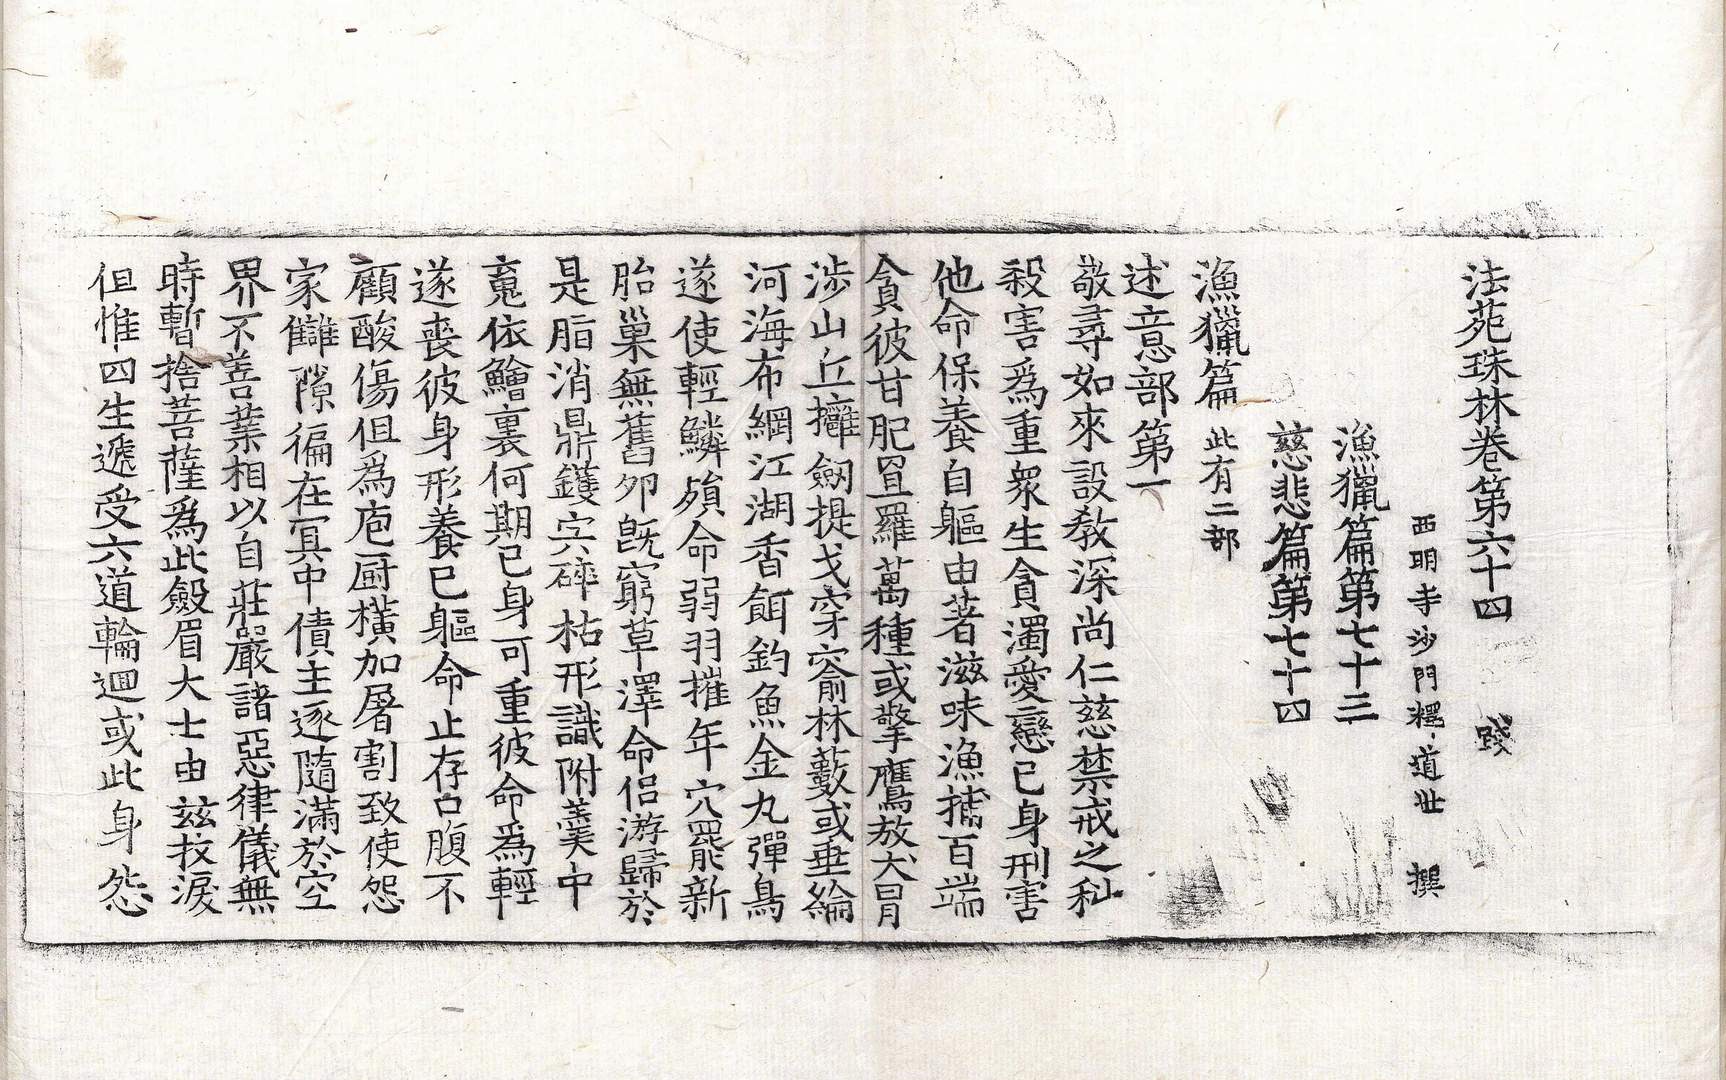 法苑珠林卷第六十四 踐
西明寺沙門釋道世 撰
漁獵篇第七十三
慈悲篇第七十四
漁獵篇 此有二部
述意部第一
敬尋如來設教深尚仁慈禁戒之科
殺害爲重衆生貪濁愛戀己身刑害
他命保養自軀由著滋味漁捕百端
貪彼甘肥罝羅萬種或擎鷹放犬冒
涉山丘擁劒提戈穿窬林藪或垂綸
河海布網江湖香餌釣魚金丸彈鳥
遂使輕鱗殞命弱羽摧年穴罷新
胎巢無舊卵旣窮草澤命侣游歸於
是脂消鼎鑊宍碎枯形識附羹中
䰟依鱠裏何期己身可重彼命爲輕
遂喪彼身形養己軀命止存口腹不
顧酸傷但爲庖厨橫加屠割致使怨
家讎隙徧在冥中債主逐隨滿於空
界不善業相以自莊嚴諸惡律儀無
時暫捨菩薩爲此斂眉大士由兹抆淚
但惟四生遞受六道輪迴或此身怨